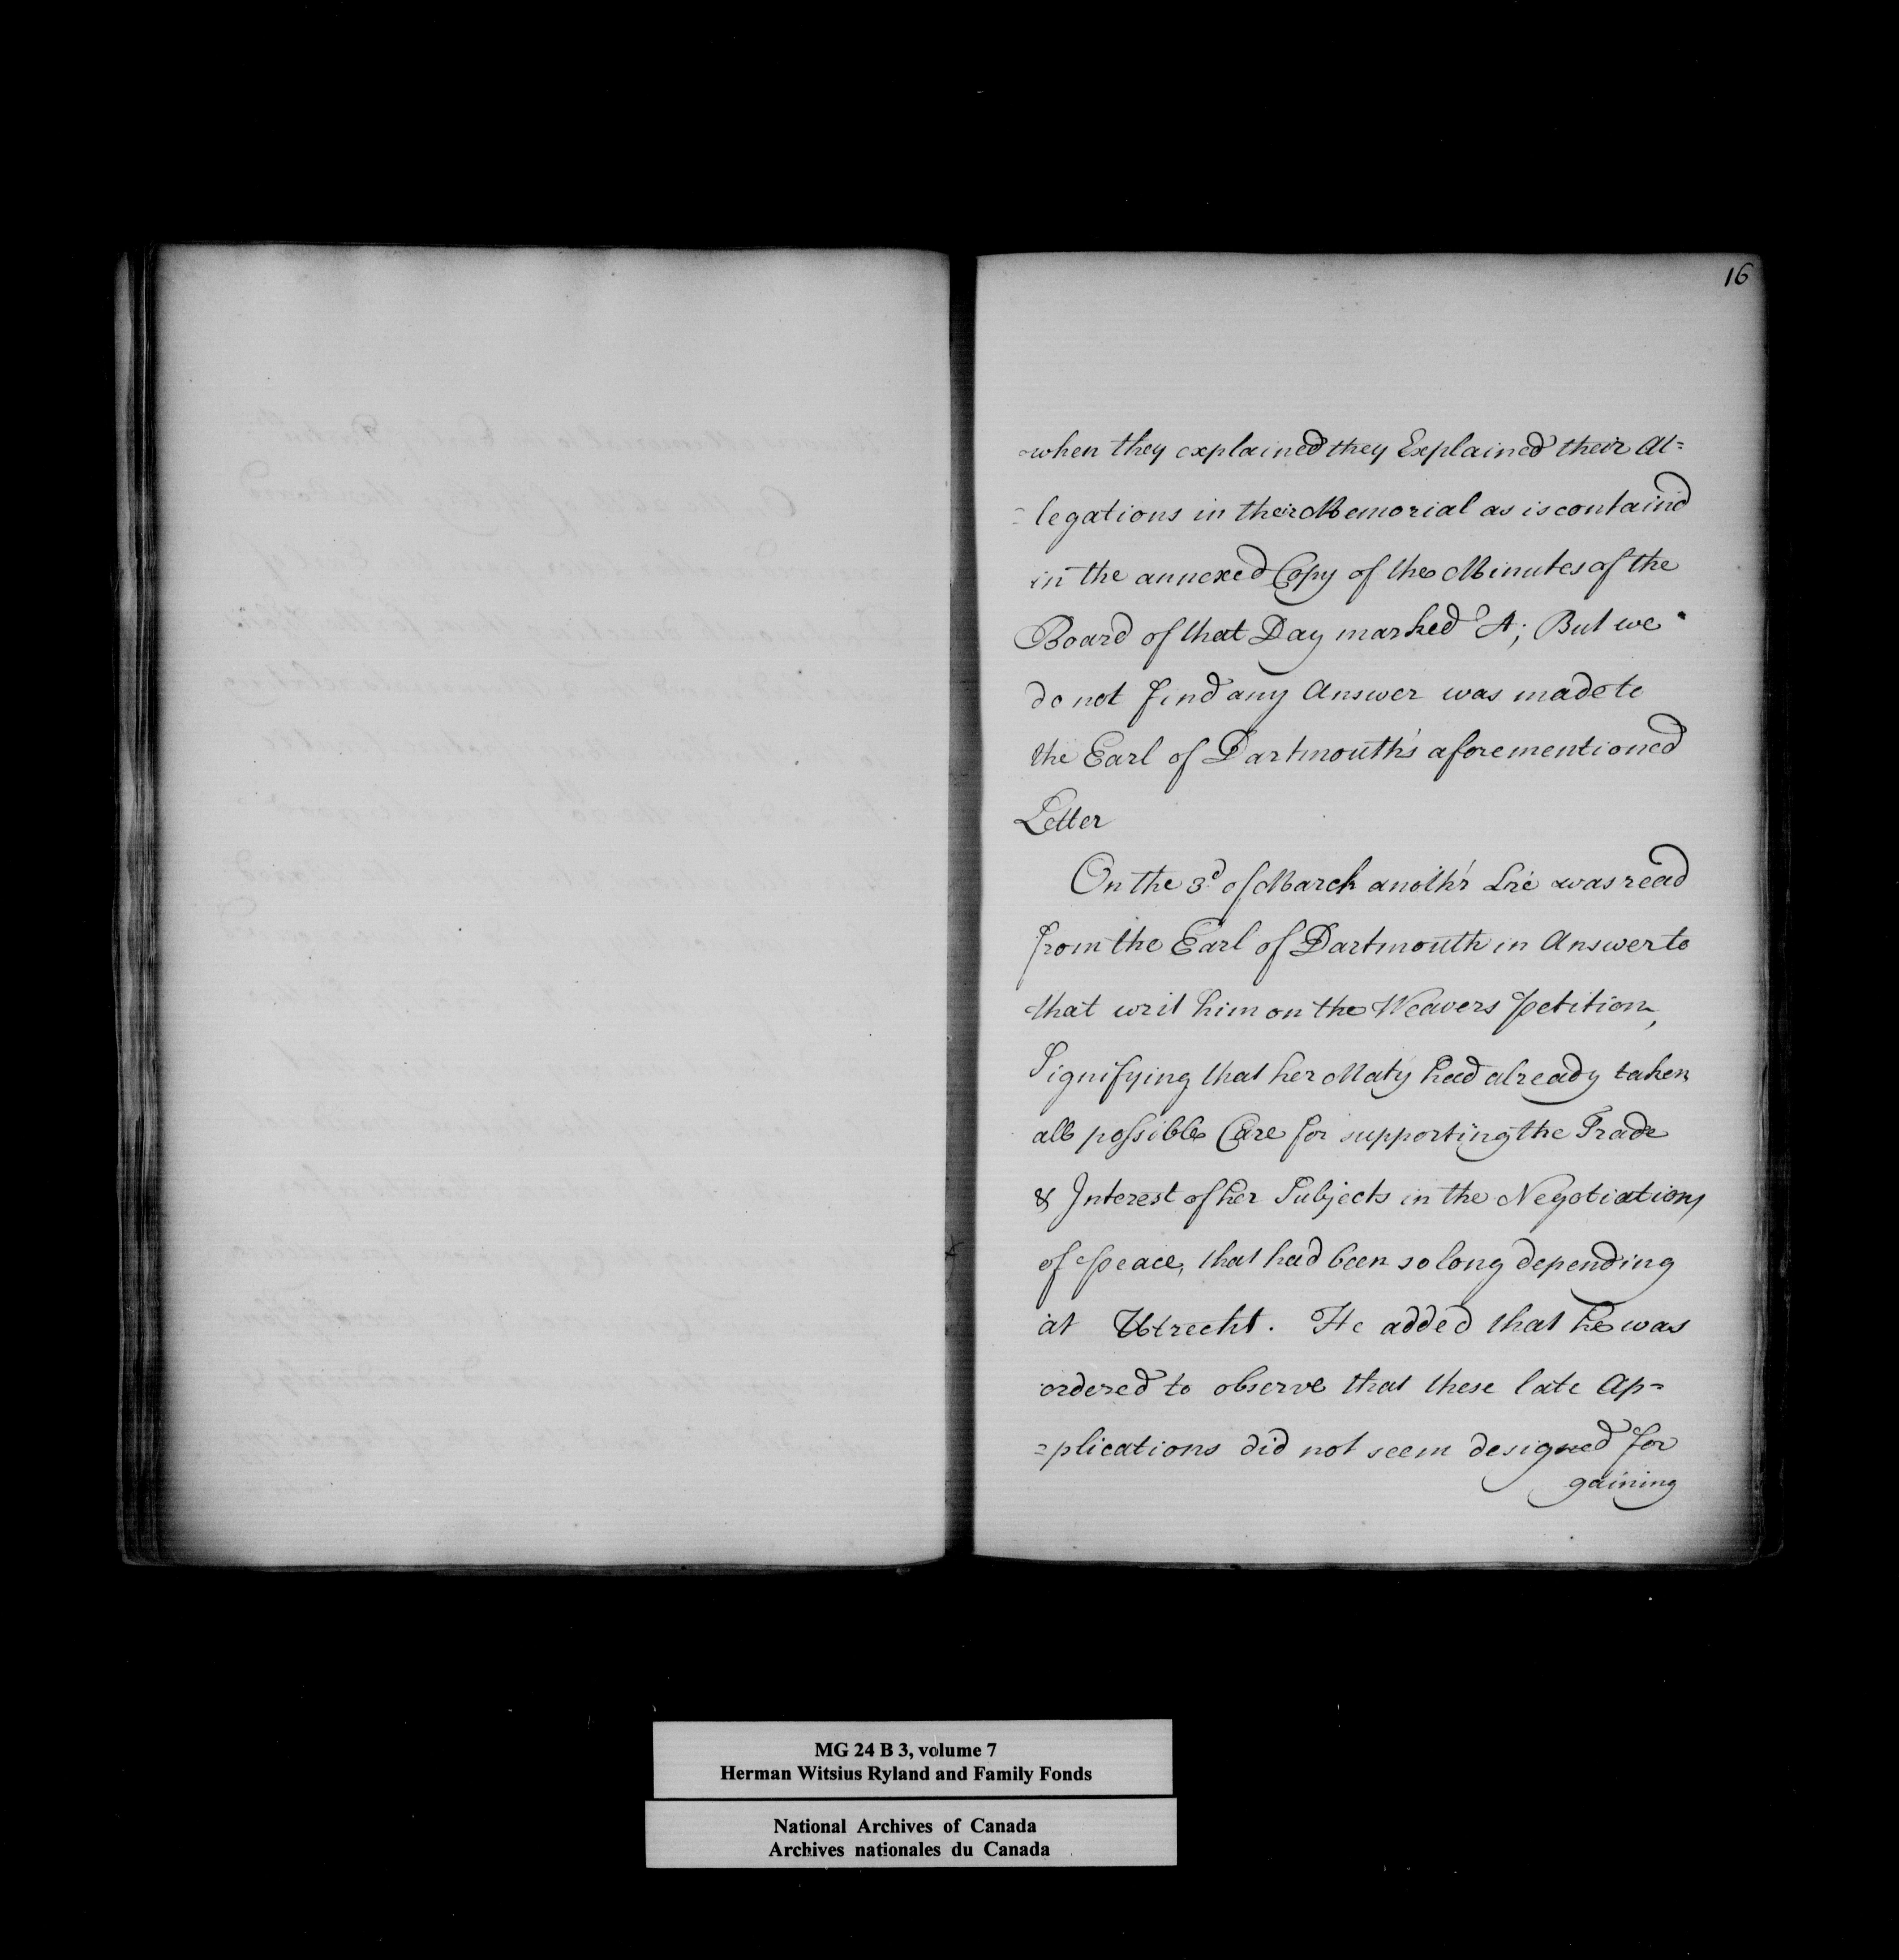 16
when they explained they Explained their Al=
=legations in their Memorial as is containd
in the annexed Copy of the Minutes of the
Board of that Day marked A; But we
do not find any Answer was made to
the Earl of Dartmouth's aforementioned
Letter
On the 3d of March anoth'r Lre was read
from the Earl of Dartmouth in Answer to
that writ him on the Weavers petition,
Signifying that her Maty had already taken
all possible Care for supporting the Trade
& Interest of her Subjects in the Negotiations
of peace, that had been so long depending
at Utrecht. He added that he was
ordered to observe that these late Ap=
=plications did not seem designed for
gaining
MG 24 B 3, volume 7
Herman Witsius Ryland and Family Fonds
National Archives of Canada
Archives nationales du Canada